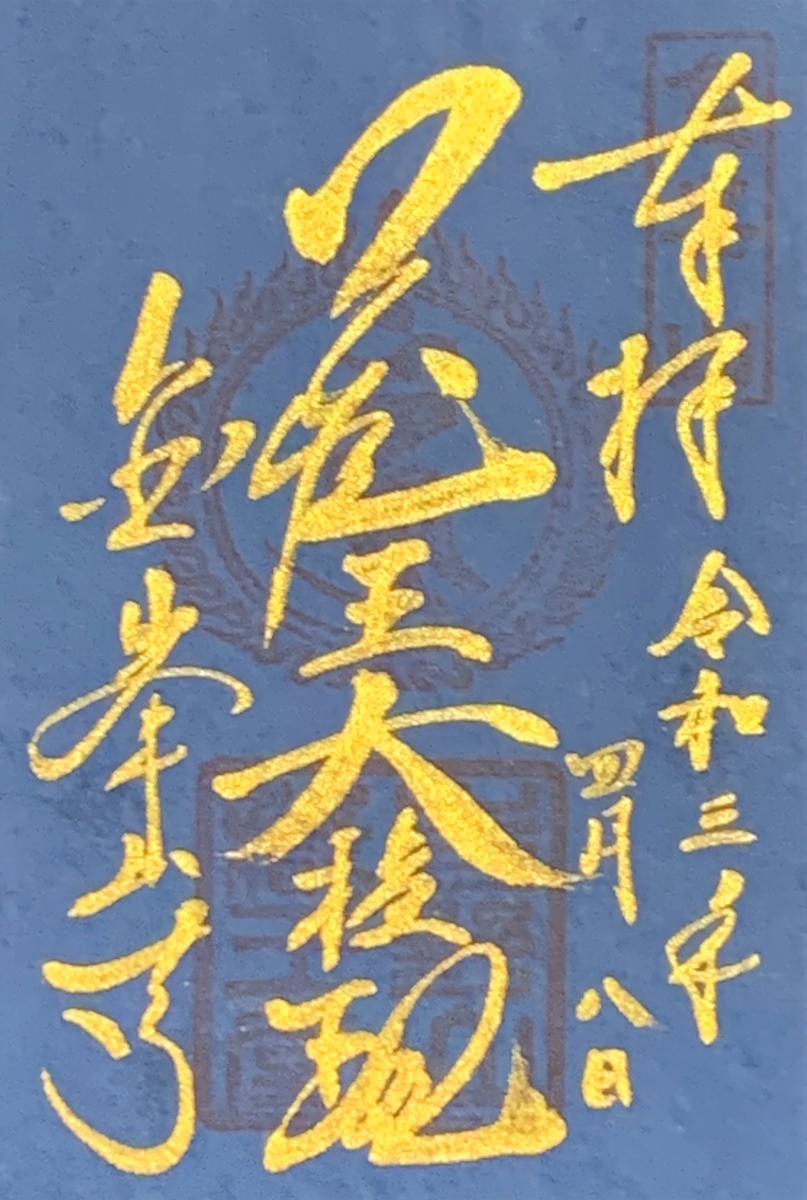 奉拝
令和三年
四月八日
蔵王大権現
金峯山寺